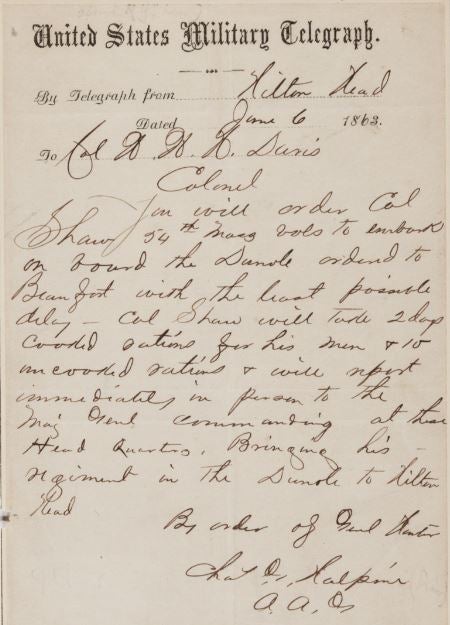 United States Military Telegraph.
By Telegraph from Hilton Head
Dated June 6 1863.
To Col W. W. H. Davis
Colonel
You will order Col
Shaw 54th Mass vols to embark
on board the Dunole ordered to
Beaufort with the least possible
delay — Col Shaw will take 2 days
cooked rations for his men & 10
uncooked rations & will report
immediately in person to the
Maj Genl commanding at these
Head Quarters. Bringing his
regiment in the Dunole to Hilton
Head
By order of Genl Hunter
Chas G. Halpine
A. A. G